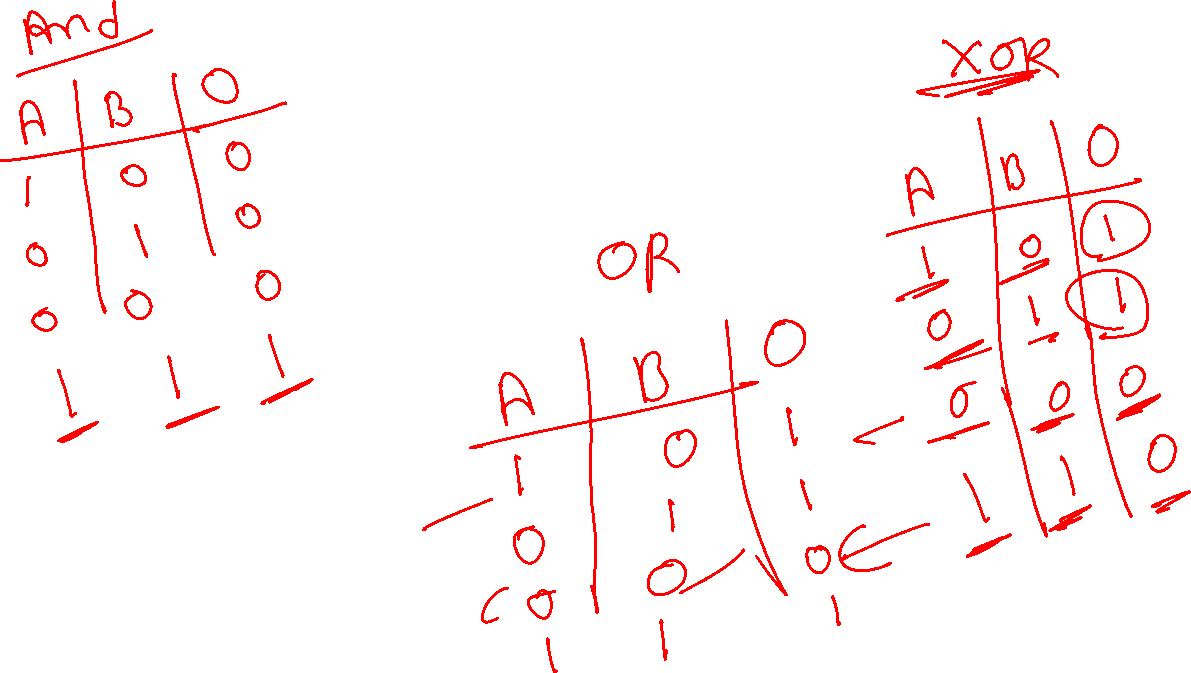 And
A B O
1 0 0
0 1 0
0 0 0
1 1 1
OR
A B O
1 0 1
0 1 1
0 0 0
1 1 1
XOR
A B O
1 0 1
0 1 1
0 0 0
1 1 0